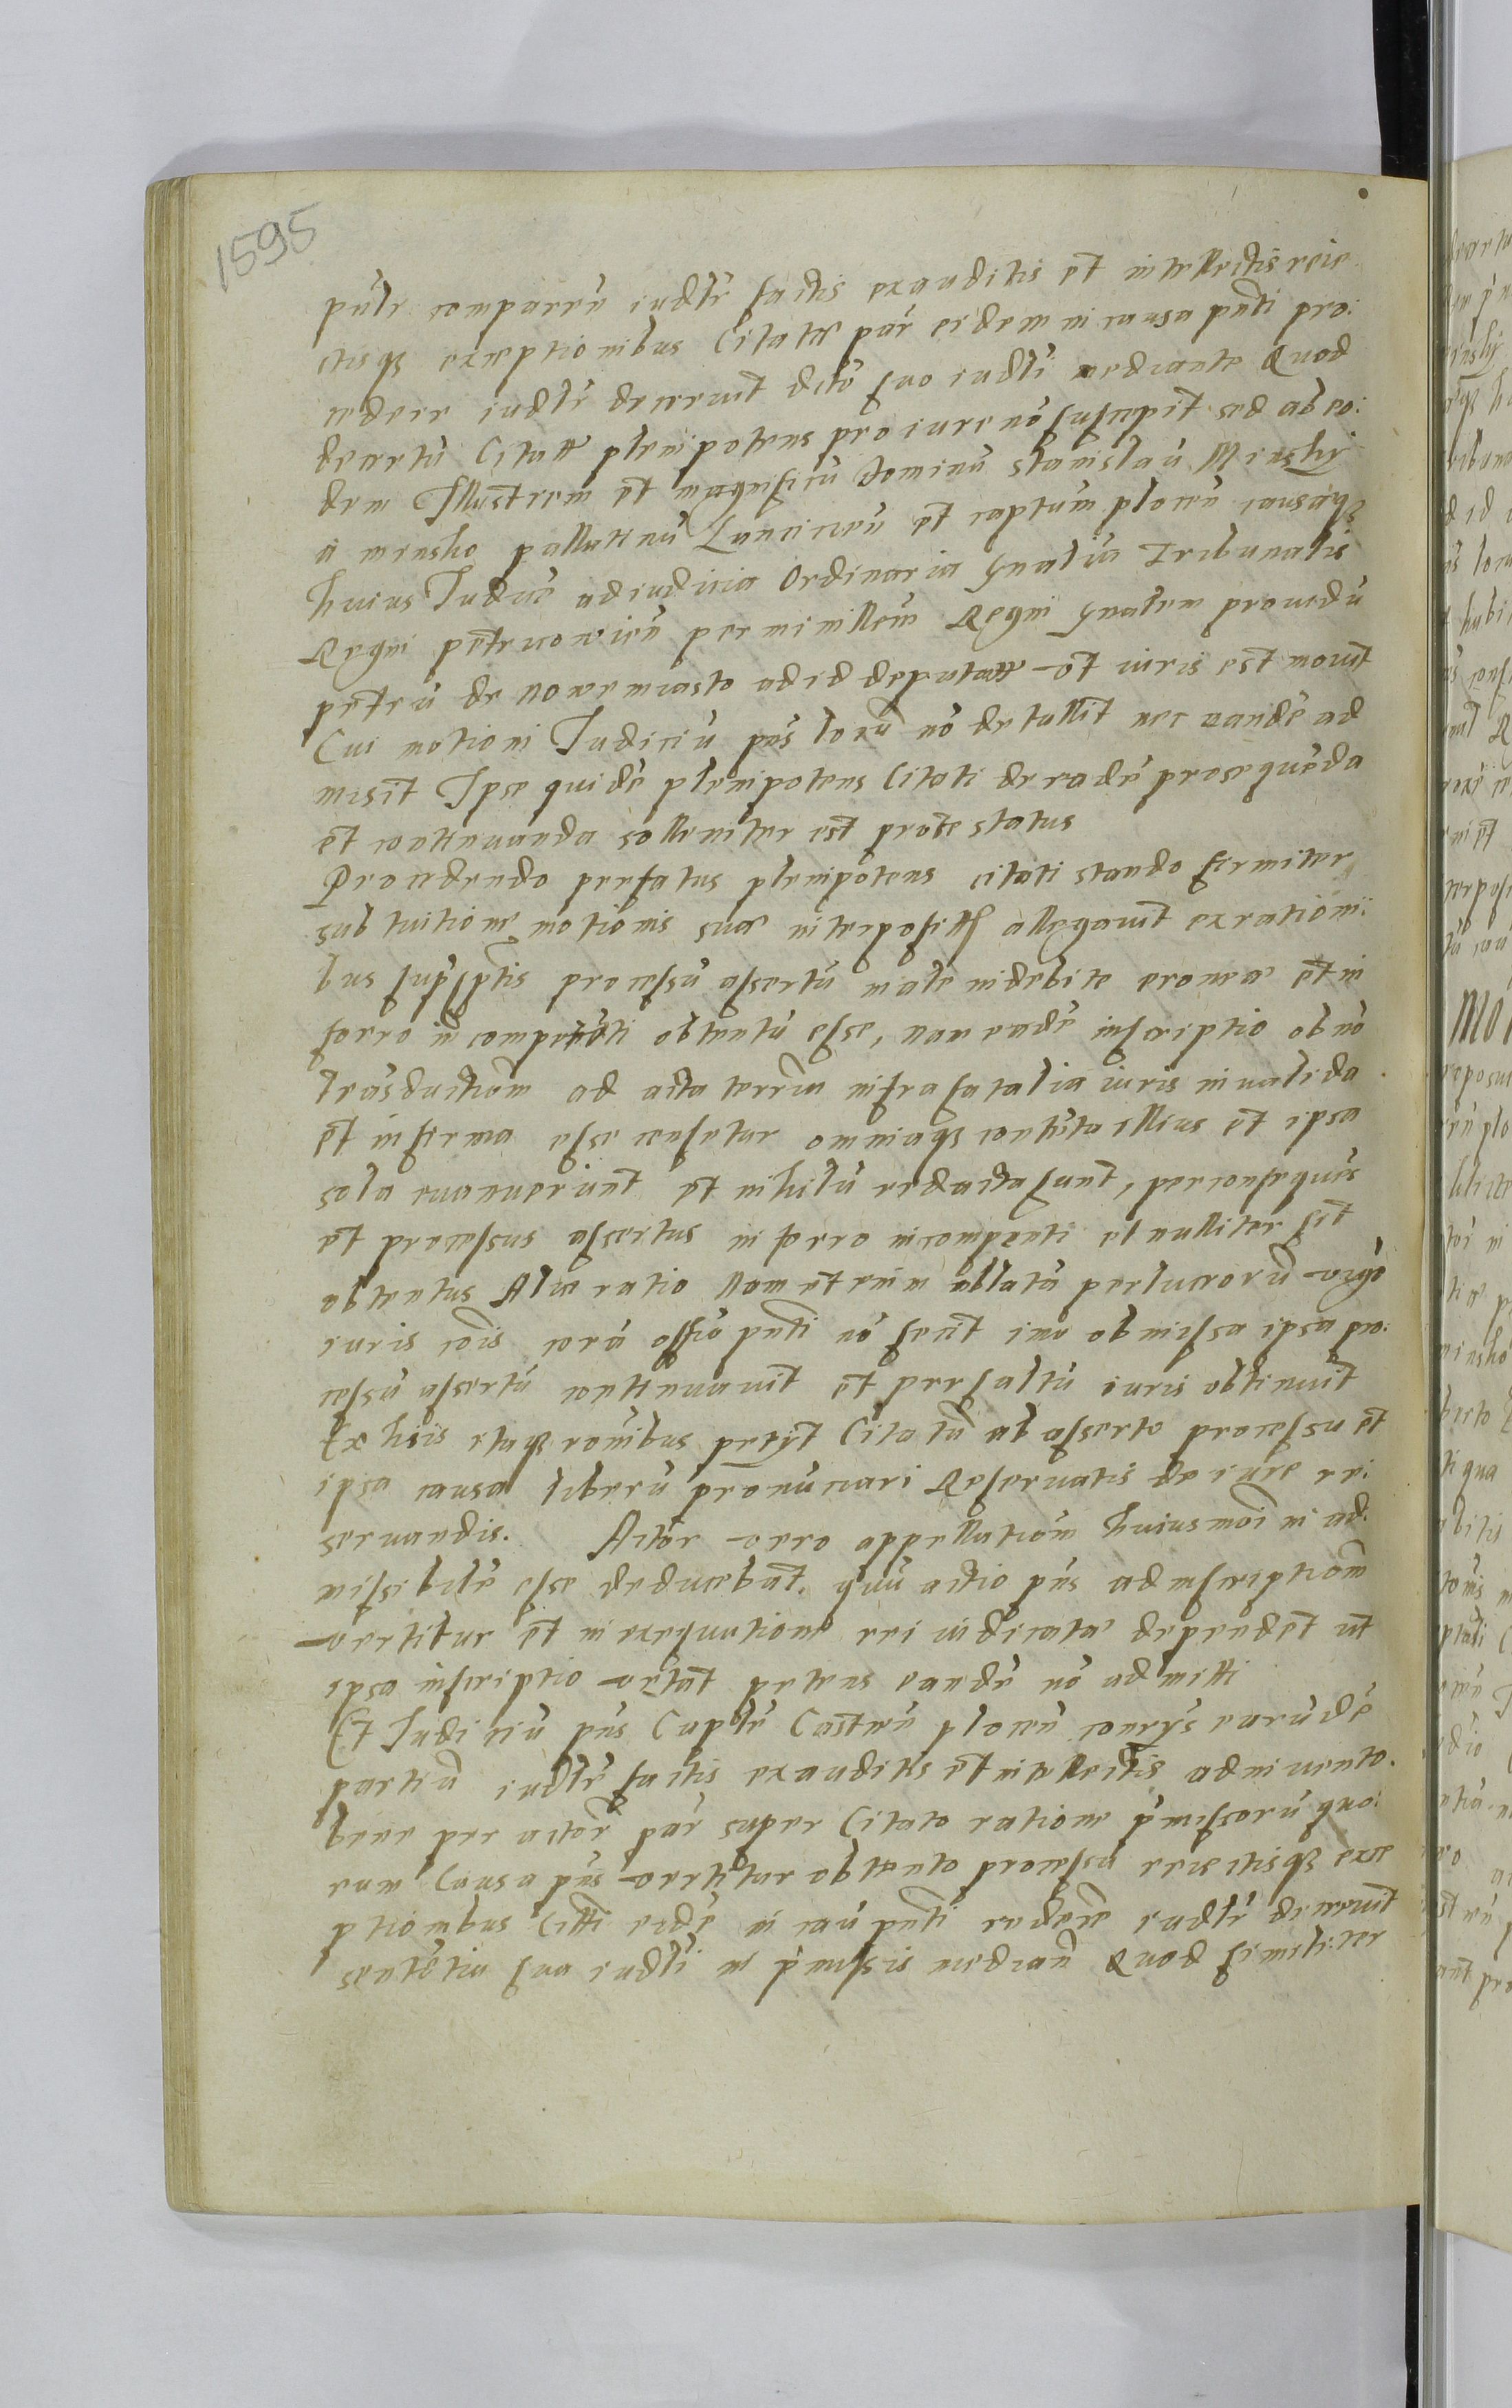 1595
pnŭlr comparen̄ iudlr̄ factis exauditis et intellectis reie
ctisq3 exceptionibus Citati par eidem in causa pn̄ti pro:
cedere iudlr̄ decrevit dcto suo iudli mediante Quod
decretū Citati plenipotens pro iure nō suscepit sed ab eo:
dem Illustrem et magnificū dominū stanislaū Minsky
a minsko pallatinū Lancicien̄ et captum plocen̄ causaq3
huius Iudice ad iudicia Ordinaria Gnalia Tribunalis
Regni petricovien̄ per minillem Regni gnalem providū
petrū de nowemiasto ad id deputatt ut iuris est movit
Cui motioni Iudiciū pn̄s locū nō detullit nec eandē ad
misit Ipse quidē plenipotens Citati de eadē prosequēda
et continuanda sollemniter est protestatus
Procedendo prefatus plenipotens citati stando firmiter
sub tuitione motionis suae interposittȩ allegavit ex rationi:
bus supsptis processū assertū male indebite eronee et in
forro in competēti obtentū esse, nam eadē inscriptio ob nō
trāsductiom̄ ad acta terrm̄ infra fatalia iuris invalida
et infirma esse censetur omniaq3 contēta illius et ipsa
sola evanuerunt et nihilū redacta sunt, per conseqūs
et processus assertus in forro incompenti et nulliter sit
obtentus Alia ratio Nam etenim oblatā per lucrorū vigō
iuris cōis corā offō pn̄ti nō fecit imo obmissa ipsa pro:
cessū assertū continuavit et per saltū iuris obtinuit
Ex hiis itaq3 rōnibus petyt Citatū ab asserto processu et
ipsa causa liberū pronūciari Reservatis de iure re:
servandis. Actor vero appellatiom̄ huiusmoī in ad:
missibilē esse deducebat, quū actio pn̄s ad inscriptiom̄
vertitur et in exequutione rei iudicatae dependet ut
ipsa inscriptio vētat petens eandē nō admitti
Et Iudiciū pn̄s Captlē Castren̄ plocen̄ convys earūdē
partiū iudlr̄ factis exauditis et intellectis ad invento
bene per actor̄ par super Citato ratione p̄missorū quo:
rum causa pn̄s vertitur obtento processu reiectisq3 exce
ptionibus Citti eidē in caū pn̄ti cedere iudlr̄ decrevit
sentētia sua iudli in p̄missis median̄ Quod similiter